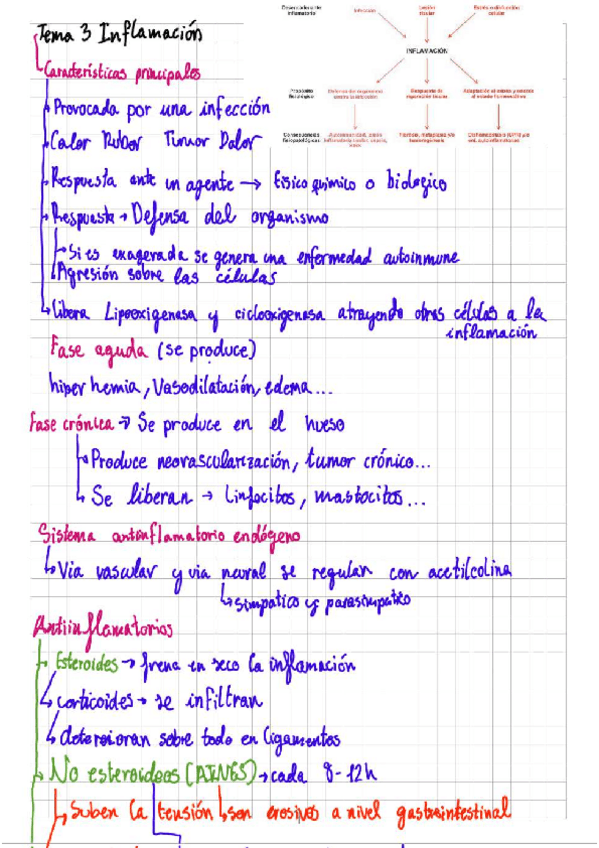 Tema 3 Inflamación
Desencadenante inflamatorio
Infección
Lesión tisular
Estrés o disfunción celular
INFLAMACIÓN
Propósito fisiológico
Defensa del organismo
Respuesta de reparación tisular
Adaptación al estrés y
Consecuencias fisiopatológicas
Características principales
Provocada por una infección
Calor Rubor Tumor Dolor
Respuesta ante un agente → físico químico o biológico
Respuesta → Defensa del organismo
Si es exagerada se genera una enfermedad autoinmune
Agresión sobre las células
libera Lipooxigenasa y ciclooxigenasa atrayendo otras células a la
inflamación
Fase aguda (se produce)
hiper hemia, Vasodilatación, edema...
Fase crónica → Se produce en el hueso
Produce neovascularización, tumor crónico...
Se liberan → Linfocitos, mastocitos...
Sistema antiinflamatorio endógeno
Via vascular y via neural se regulan con acetilcolina
simpatico y parasimpatico
Antiinflamatorios
Esteroides → frena en seco la inflamación
corticoides → se infiltran
deterioran sobre todo en ligamentos
No esteroideos (AINES) → cada 8-12h
Suben la tensión son erosivos a nivel gastrointestinal